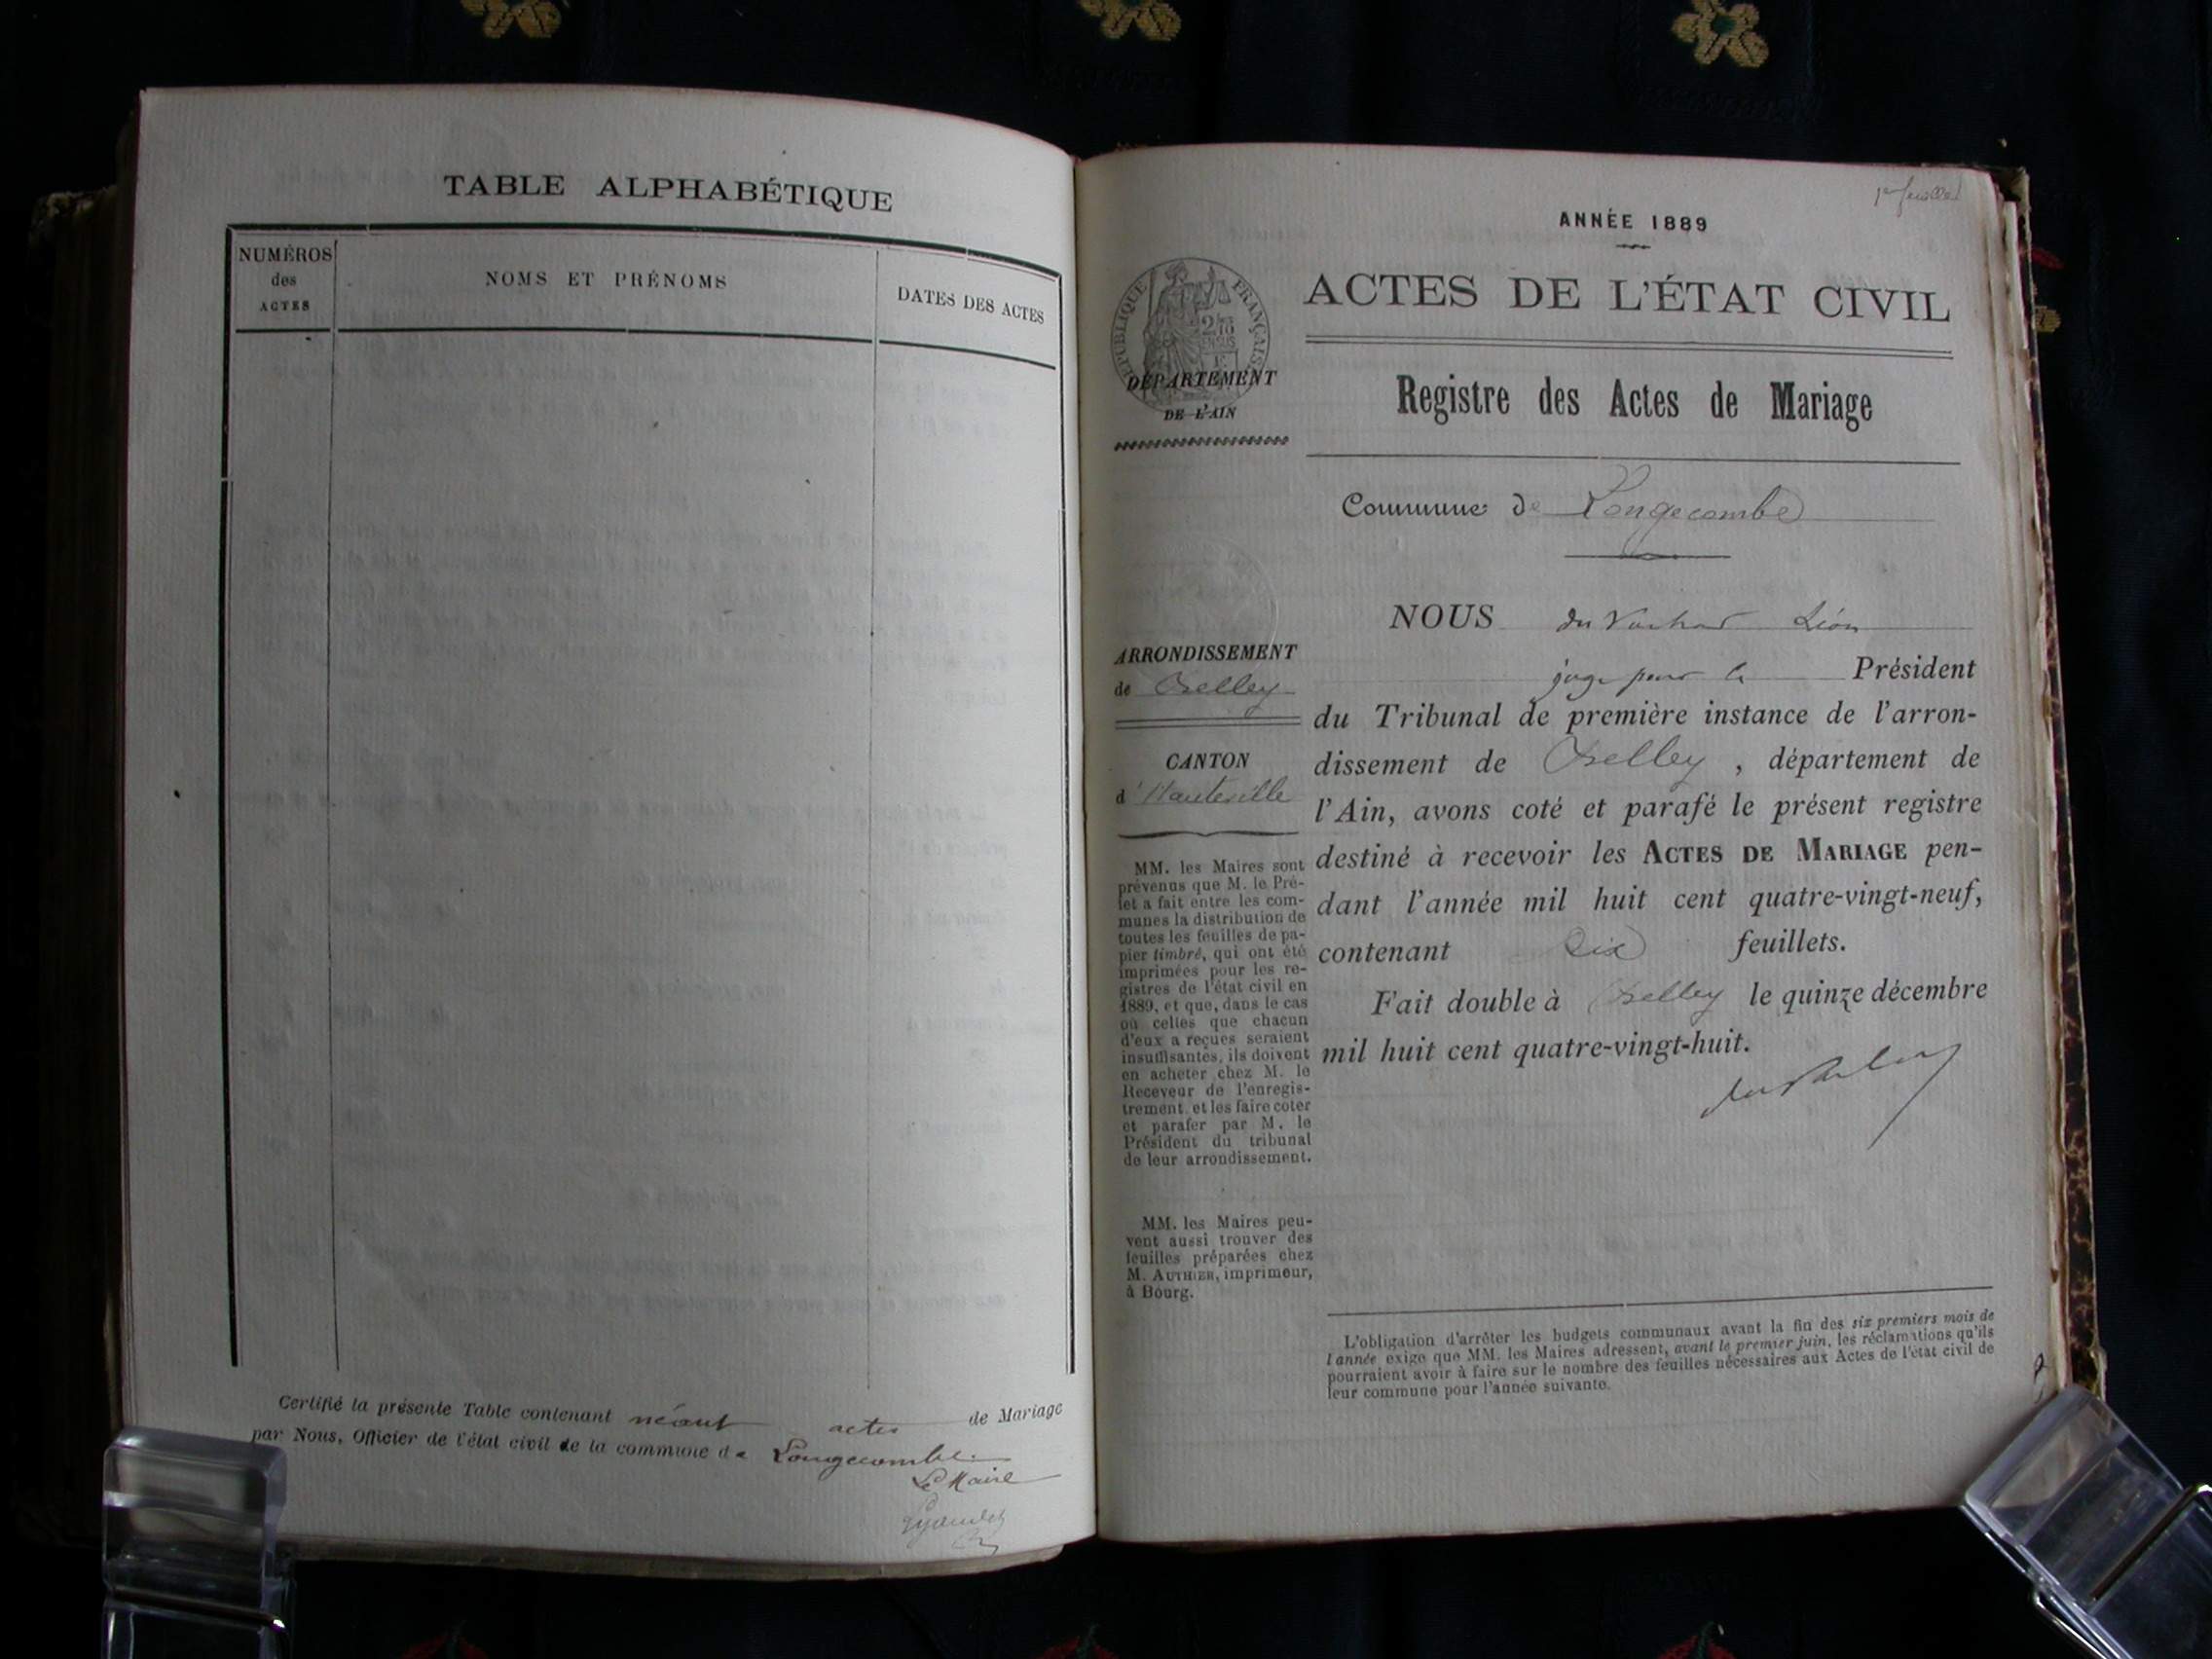 TABLE ALPHABÉTIQUE
NUMÉROS
des
ACTES
NOMS ET PRÉNOMS
DATES DES ACTES
Certifié la présente Table contenant néant actes de Mariage
par Nous, Officier de l'état civil de la commune de Longecombe.
Le Maire
1er feuillet
ANNÉE 1889
ACTES DE L'ÉTAT CIVIL
RÉPUBLIQUE FRANÇAISE
DÉPARTEMENT
DE L'AIN
Registre des Actes de Mariage
Commune de Longecombe
ARRONDISSEMENT
de Belley
CANTON
d'Hauteville
MM. les Maires sont
prévenus que M. le Pré-
fet a fait entre les com-
munes la distribution de
toutes les feuilles de pa-
pier timbré, qui ont été
imprimées pour les re-
gistres de l'état civil en
1889, et que, dans le cas
où celles que chacun
d'eux a reçues seraient
insuffisantes, ils doivent
en acheter chez M. le
Receveur de l'enregis-
trement, et les faire coter
et parafer par M. le
Président du tribunal
de leur arrondissement.
MM. les Maires peu-
vent aussi trouver des
feuilles préparées chez
M. AUTHIER, imprimeur,
à Bourg.
NOUS du Léon
juge pour le Président
du Tribunal de première instance de l'arron-
dissement de Belley, département de
l'Ain, avons coté et parafé le présent registre
destiné à recevoir les ACTES DE MARIAGE pen-
dant l'année mil huit cent quatre-vingt-neuf,
contenant feuillets.
Fait double à Belley le quinze décembre
mil huit cent quatre-vingt-huit.
L'obligation d'arrêter les budgets communaux avant la fin des six premiers mois de
l'année exige que MM. les Maires adressent, avant le premier juin, les réclamations qu'ils
pourraient avoir à faire sur le nombre des feuilles nécessaires aux Actes de l'état civil de
leur commune pour l'année suivante.